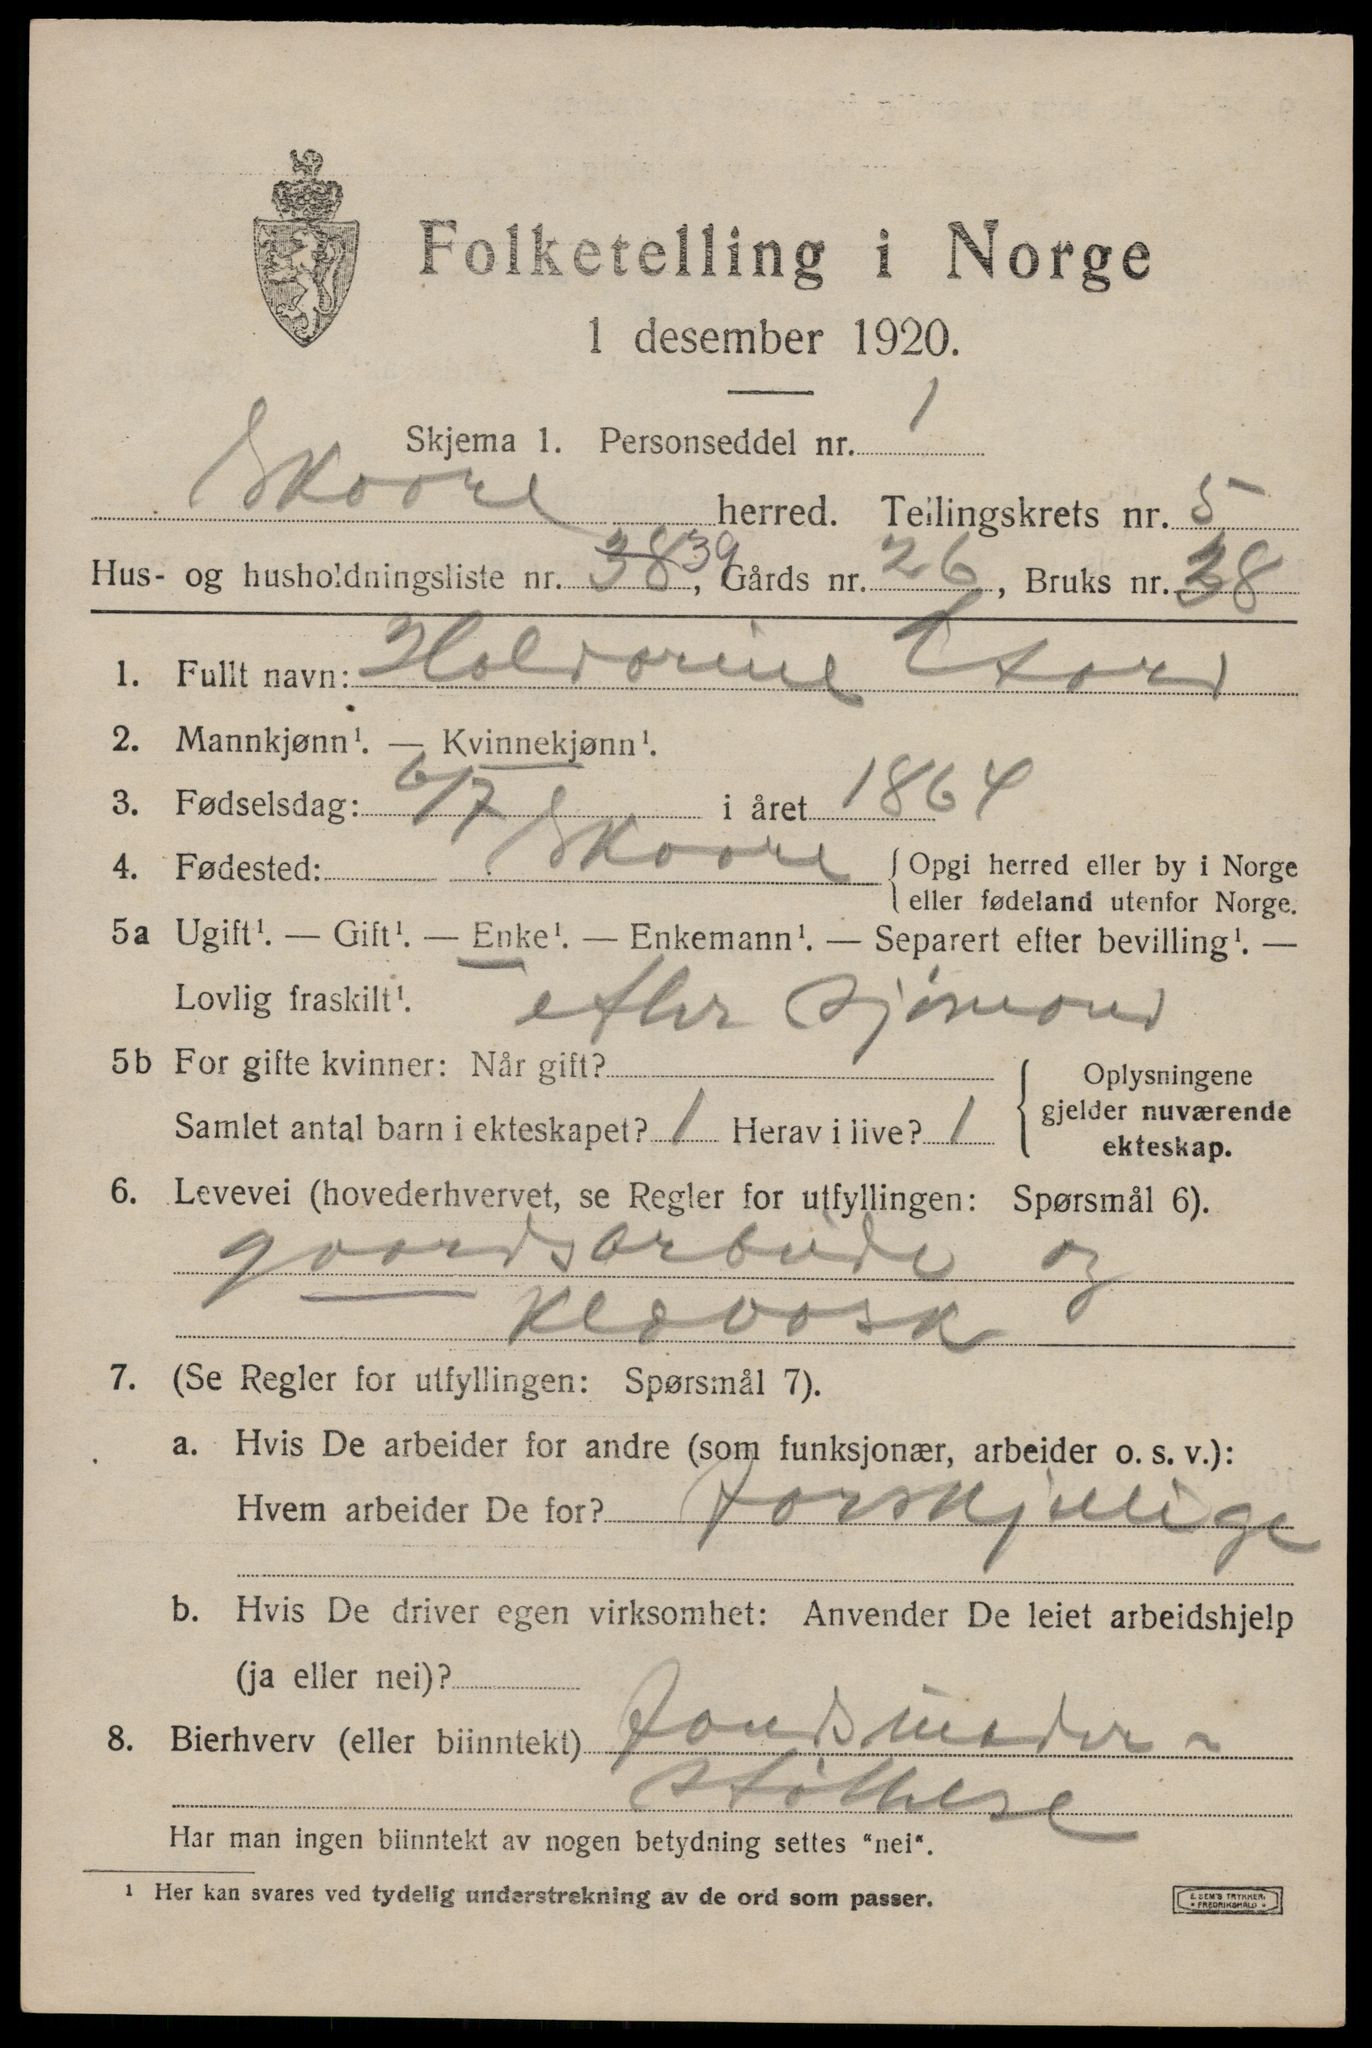 Folketelling i Norge
1 desember 1920.
Skjema 1. Personseddel nr. 1
Skaare herred. Tellingskrets nr. 5
Hus- og husholdningsliste nr. 38 39, Gårds nr. 26, Bruks nr. 38
1. Fullt navn: Haldorine
2. Mannkjønn¹. — Kvinnekjønn¹.
3. Fødselsdag: 6/7 i året 1864
4. Fødested: Skaare {Opgi herred eller by i Norge
eller fødeland utenfor Norge.
5a Ugift¹. — Gift¹. — Enke¹. — Enkemann¹. — Separert efter bevilling¹. —
Lovlig fraskilt¹. efter sjømand
5b For gifte kvinner: Når gift?
Samlet antal barn i ekteskapet? 1 Herav i live? 1
{Oplysningene
gjelder nuværende
ekteskap.
6. Levevei (hovederhvervet, se Regler for utfyllingen: Spørsmål 6).
gaardsarbeide og
klævask
7. (Se Regler for utfyllingen: Spørsmål 7).
a. Hvis De arbeider for andre (som funksjonær, arbeider o. s. v.):
Hvem arbeider De for? forskjellige
b. Hvis De driver egen virksomhet: Anvender De leiet arbeidshjelp
(ja eller nei)?
8. Bierhverv (eller biinntekt)
støttelse
Har man ingen biinntekt av nogen betydning settes "nei".
¹ Her kan svares ved tydelig understrekning av de ord som passer.
E. SEM'S TRYKKERI
* FREDRIKSHALD *